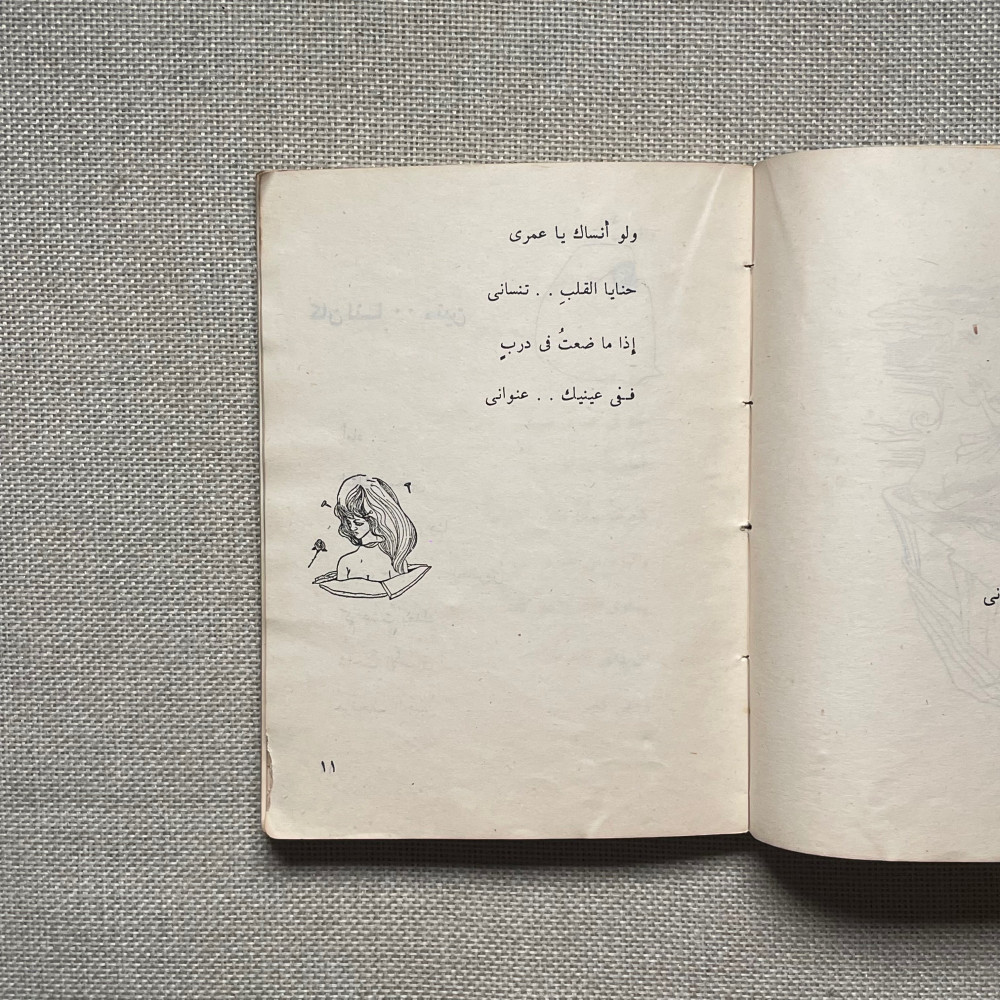 ولو أنساك يا عمرى
حنايا القلبِ . . تنسانى
إذا ما ضعتُ فى دربٍ
ففى عينيك . . عنوانى
١١